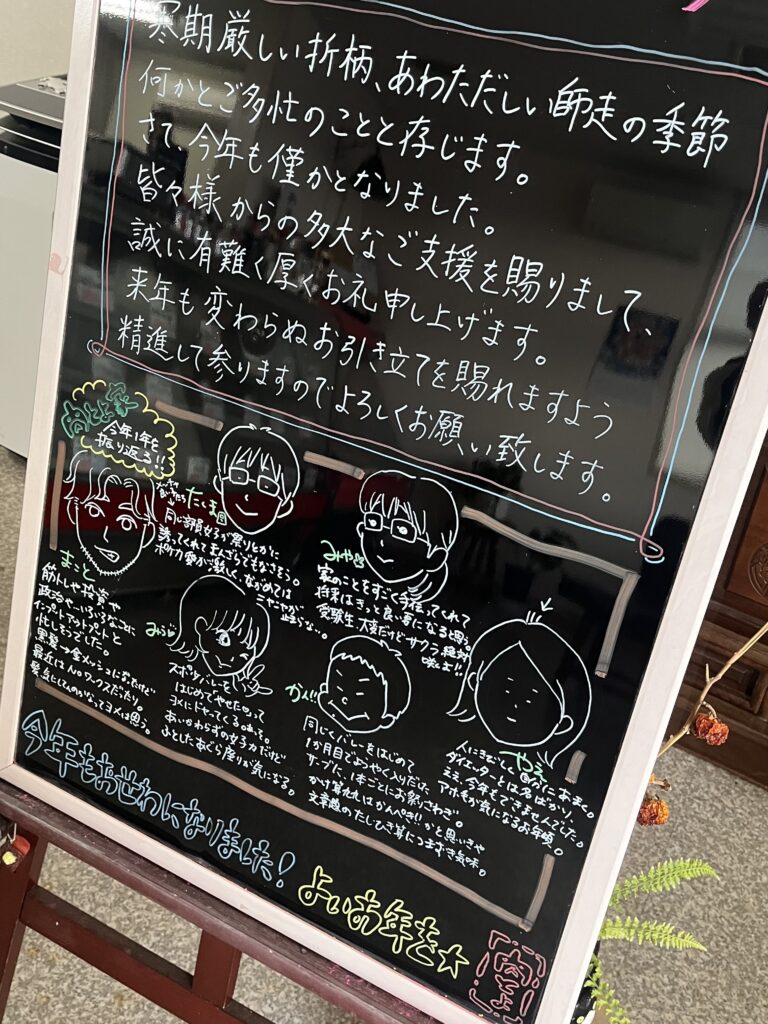 寒期厳しい折柄、あわただしい師走の季節
何かとご多忙のことと存じます。
さて、今年も僅かとなりました。
皆々様からの多大なご支援を賜りまして、
誠に有難く厚くお礼申し上げます。
来年も変わらぬお引き立てを賜れますよう
精進して参りますのでよろしくお願い致します。
今年1年を
振り返る!!
まこと
筋トレや投資や
政治や、いろいろなことに
インプットアウトプットと
忙しそうでした。
黒髪→金メッシュになったけど
最近はNoワックスだったり。
たくま
同じ部顔女子が
誘ってくれてまんざらでもなさそう。
ニヤニヤが
止まらない。
みや
家のことをすごく手伝ってくれて
将来はきっと良い妻になると思う。
受験生 大変だけどサクラ 絶対
咲くよ!!
みう
スポ少バレーを
はじめてやせた⁉って
ヨメにドヤってくる
あいかわらずの女子力だけど
ふとしたあぐら座りが気になる。
かん!!
同じくバレーをはじめて
1か月目でようやく入りだした
サーブに、1本ごとにお祭りさわぎ。
かけ算九九はかんぺき!! かと思いきや
文章題のたしひき算につまずき気味。
やえ
人にきびしく 自分にあまく。
ダイエッターとは名ばかり、
ええ、今年もできませんでした。
アホ毛が気になるお年頃。
今年もお世わになりました!
よいお年を☆